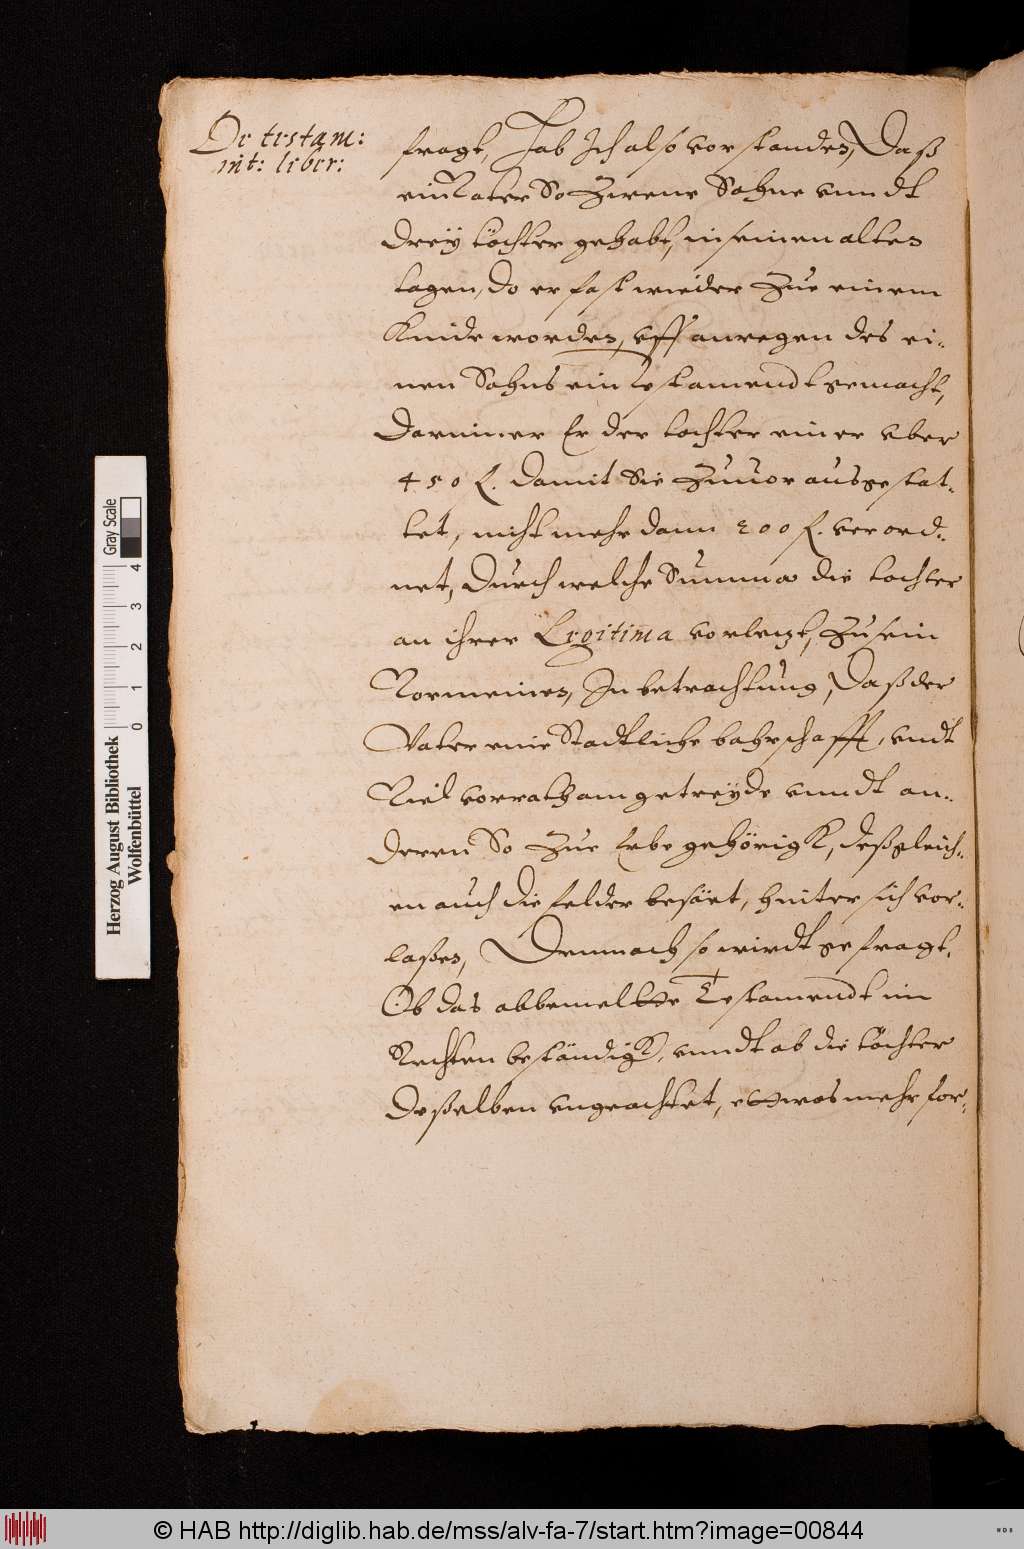 De testam:
int: liber:
fragt, Hab Ich also vorstanden, Daß
ein Vater So Zweene Sohne vnndt
Dreÿ töchter gehabt, in seinen alten
tagen, do er fast wieder Zue einem
Kinde worden, vff anregen des ei-
nen Sohns ein Testamendt gemacht,
Darinner Er der tochter einer vber
450 f. damit Sie Zuuor ausgestat-
tet, nicht mehr dann 200 f. verord-
net, Durch welche Summa die tochter
an ihrer Legitima vorletzt, Zu sein
Vormeinen, In betrachtung, Daß der
Vater eine Stadtliche bahrschafft, vndt
Viel vorrath am getreÿde vnndt an-
deren So Zue Erbe gehörigk, deßgleich-
en auch die felder besäet, hinter sich vor-
laßen, Demnach so wirdt gefragt.
Ob das obbemeltte Testamendt im
Rechten beständigk, vnndt ob die töchter
Deßelben vngeachtet, ettwas mehr for-
Herzog August Bibliothek
Wolfenbüttel
0 1 2 3 4
Gray Scale
© HAB http://diglib.hab.de/mss/alv-fa-7/start.htm?image=00844